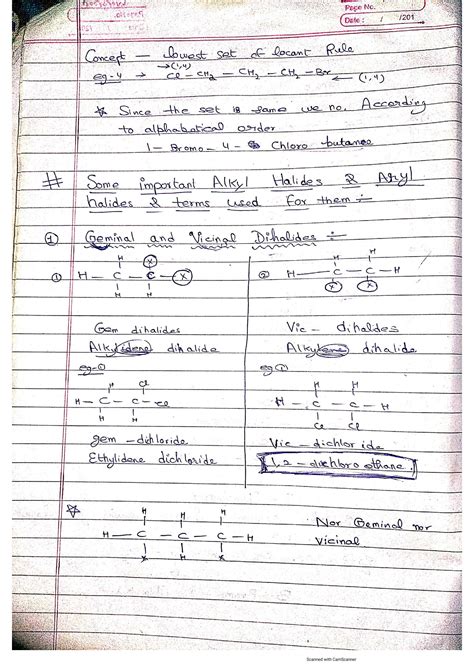 Page No.
Date : / /201
Concept — lowest set of locant Rule
→(1,4)
eg-4 → Cl — CH2 — CH2 — CH2 — Br ← (1,4)
☆ Since the set is same we no. According
to alphabetical order
1 - Bromo - 4 - Chloro butane
# Some important Alkyl Halides & Aryl
halides & terms used for them :-
① Geminal and Vicinal Dihalides :-
H X
① H — C — C — X
H H
H H
② H — C — C — H
X X
Gem dihalides
Vic - dihaldes
Alkylidene dihalide
Alkylene dihalide
eg-①
eg ①
H Cl
H — C — C — Cl
H H
H H
H — C — C — H
Cl Cl
gem - dichloride
Vic - dichloride
Ethylidene dichloride
1,2 - dichloro ethane.
☆
H H H
H — C — C — C — H
X H X
Nor Geminal nor
Vicinal
Scanned with CamScanner